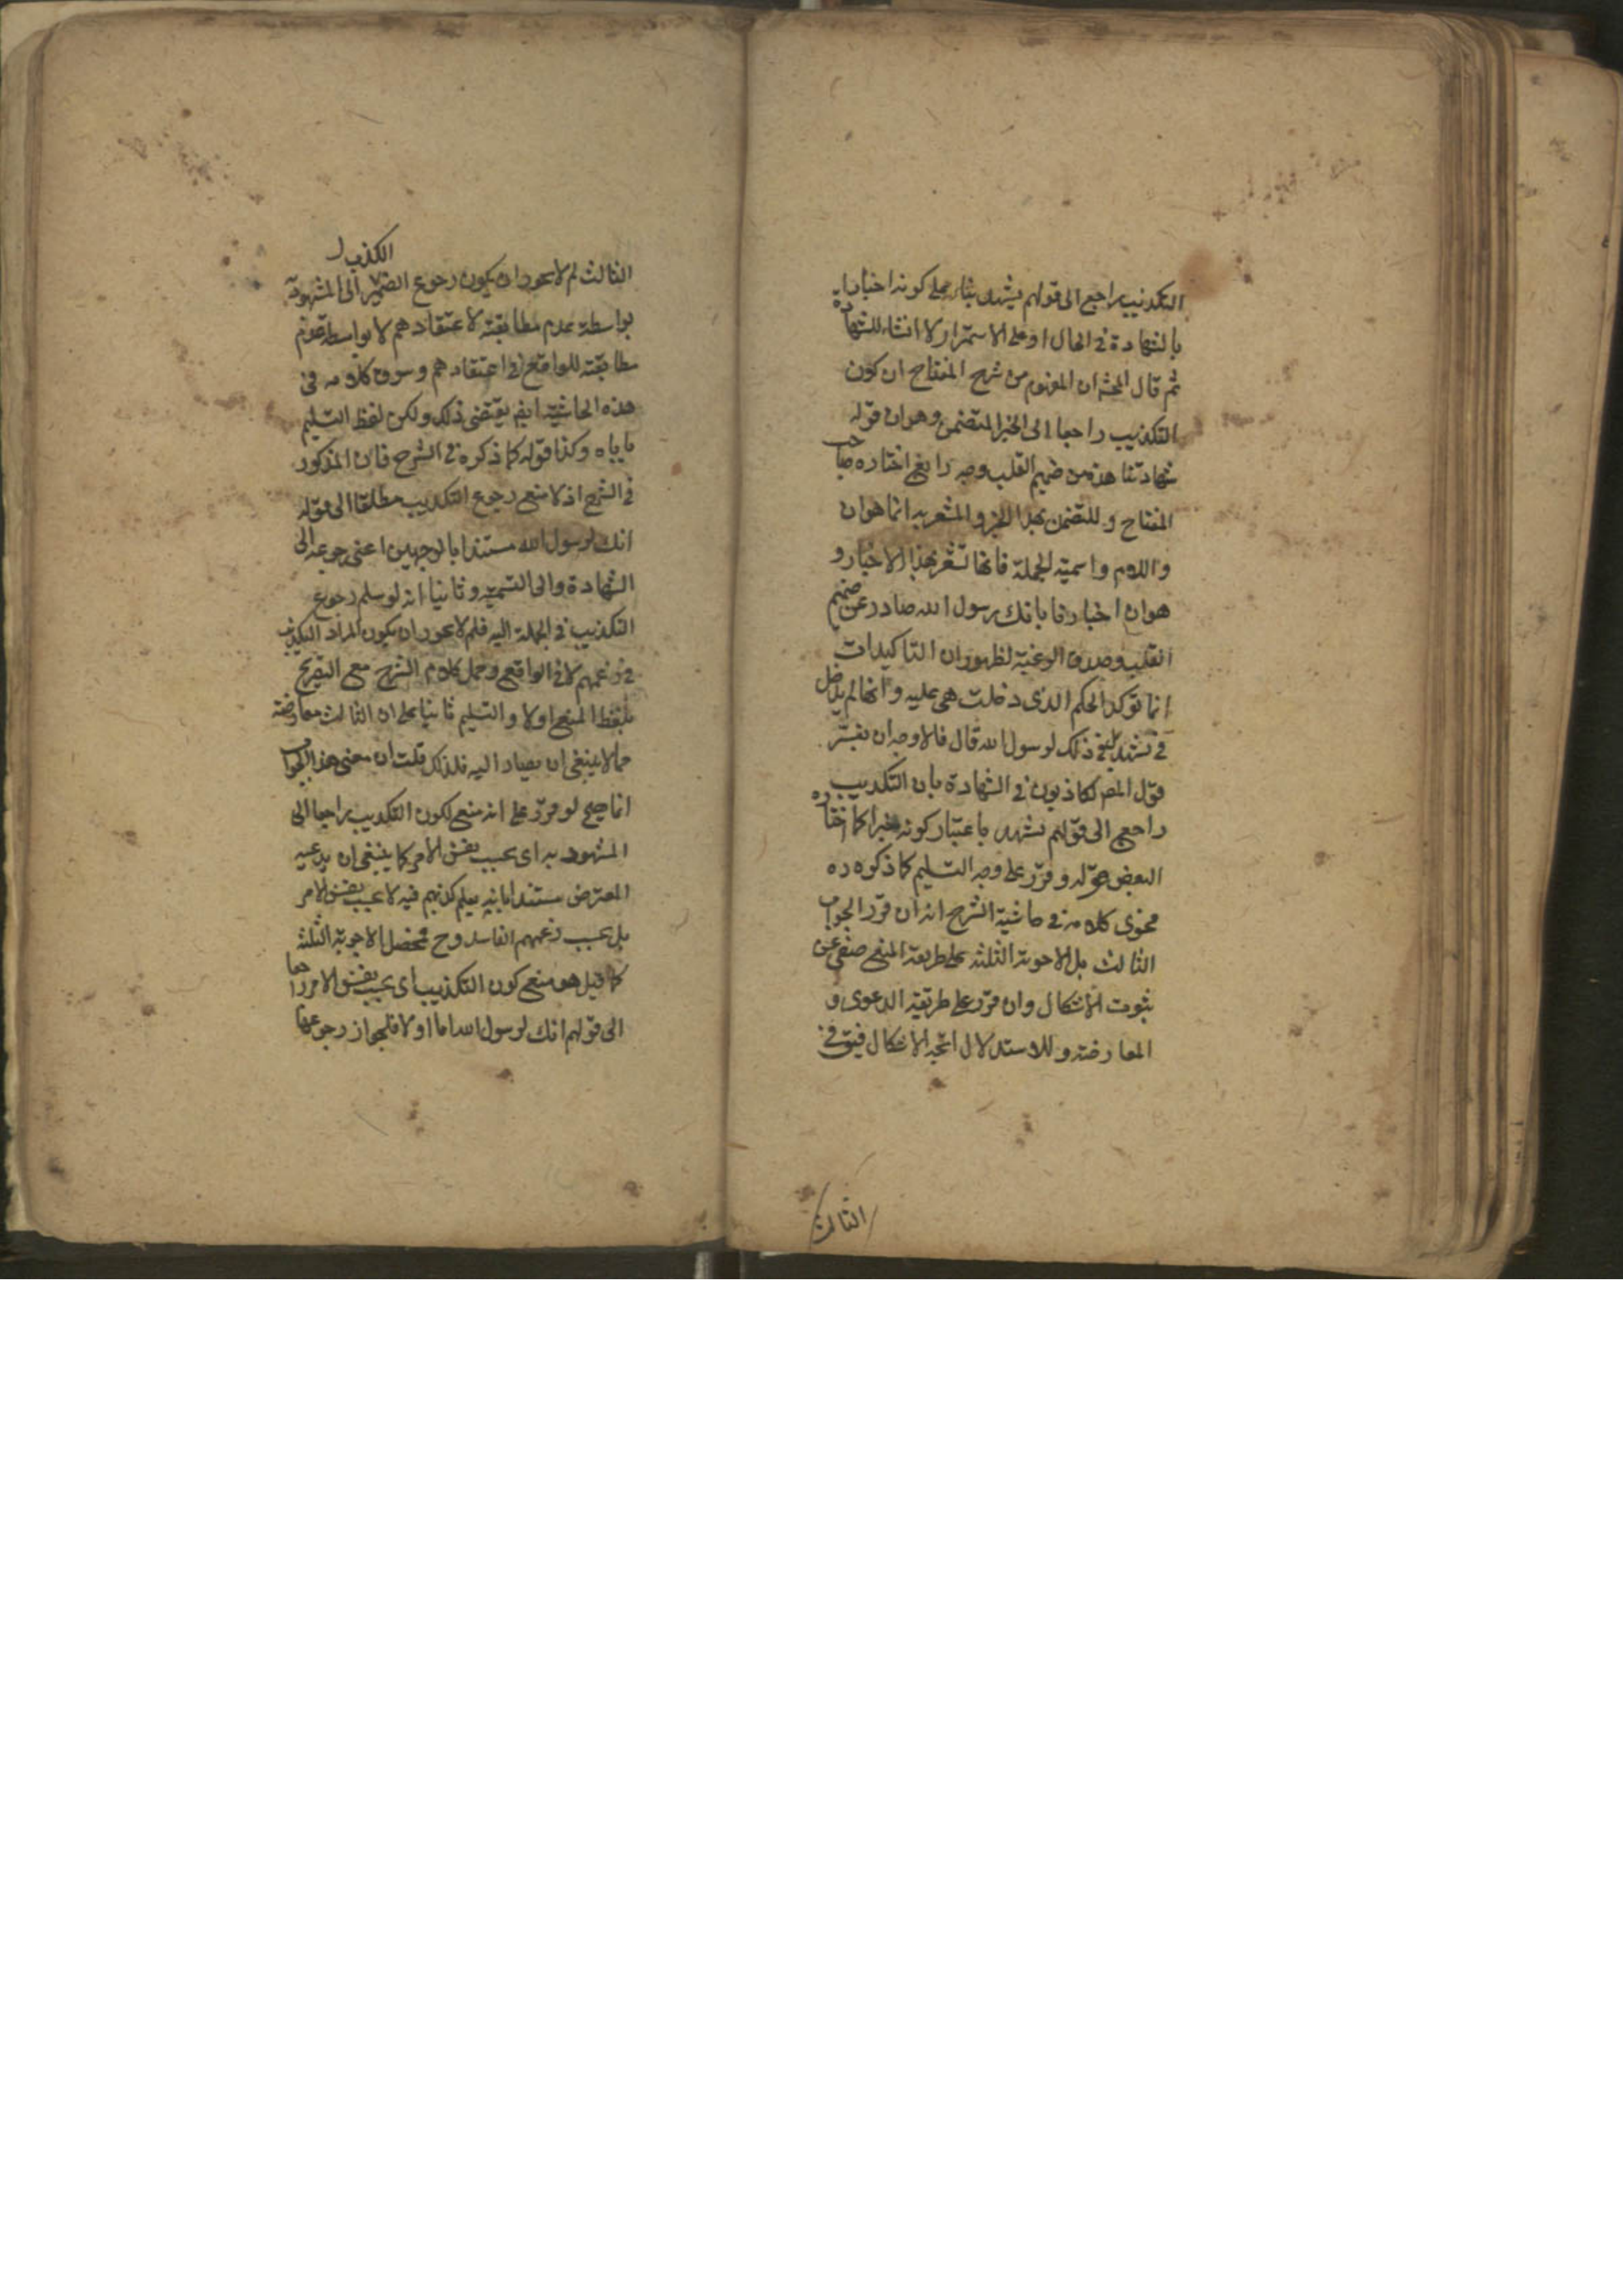 التكذيب راجع الى قولهم نشهد بناء على كونه اخبارا
بالشهادة فى الحال او على الاستمرار لا انشاء للشهادة
ثم قال المحشى ان المفهوم من شرح المفتاح ان كون
التكذيب راجعا الى الخبر المتضمن وهو ان قوله
شهادتنا هذه من صميم القلب وجه رابع اختاره صاحب
المفتاح و المتضمن بهذا الخبر و المشعر به انما هو ان
واللام واسمية الجملة فانها تشعر بهذا الاخبار و
هو ان اخبارنا بانك رسول الله صادر عن صميم
القلب وصدق الرغبة لظهور ان التاكيدات
انما توكد الحكم الذى دخلت هى عليه وانها لم يدخل
فى نشهد بل فى ذلك لرسول الله قال فالاوجه ان يفسر
قول المص لكاذبون فى الشهادة بان التكذيب
راجع الى قولهم نشهد باعتبار كونه خبرا كما اختاره
البعض قوله وقرر على وجه التسليم كما ذكره ره
فحوى كلامه فى حاشية الشرح انه ان قرر الجواب
الثالث بل الاجوبة الثلثة على طريقة المنع عن
ثبوت الاشكال وان قرر على طريقة الدعوى و
المعارضة و للاستدلال اتجه الاشكال فيق فى
الثالث
الكذب
الثالث لم لا يجوز ان يكون رجوع الضمير الى المشهود به
بواسطة عدم مطابقته لاعتقادهم لا بواسطة عدم
مطابقته للواقع فى اعتقادهم وسوق كلامه فى
هذه الحاشية ايض يقتضى ذلك ولكن لفظ التسليم
ياباه وكذا قوله كما ذكره فى الشرح فان المذكور
فى الشرح اذ لا منع رجوع التكذيب مطلقا الى قوله
انك لرسول الله مستندا بالوجهين اعنى رجوعه الى
الشهادة والى التسمية وثانيا انه لو سلم رجوع
التكذيب فى الجملة اليه فلم لا يجوز ان يكون المراد التكذيب
فى زعمهم لا فى الواقع وحمل كلام الشرح مع التصريح
بلفظ المنع اولا والتسليم ثانيا على ان الثالث معارضة
مما لا ينبغى ان يصار اليه فلذلك قلت ان معنى هذا الجواب
انما صح لو قرر على انه منع لكون التكذيب راجعا الى
المشهود به اى بحسب نفس الامر كما ينبغى ان يدعيه
المعترض مستندا بانه يعلم كذبهم فيه لا بحسب نفس الامر
بل بحسب زعمهم الفاسد وح فمحصل الاجوبة الثلثة
كما قيل هو منع كون التكذيب اى بحسب نفس الامر راجعا
الى قولهم انك لرسول الله اما اولا فلجواز رجوعها